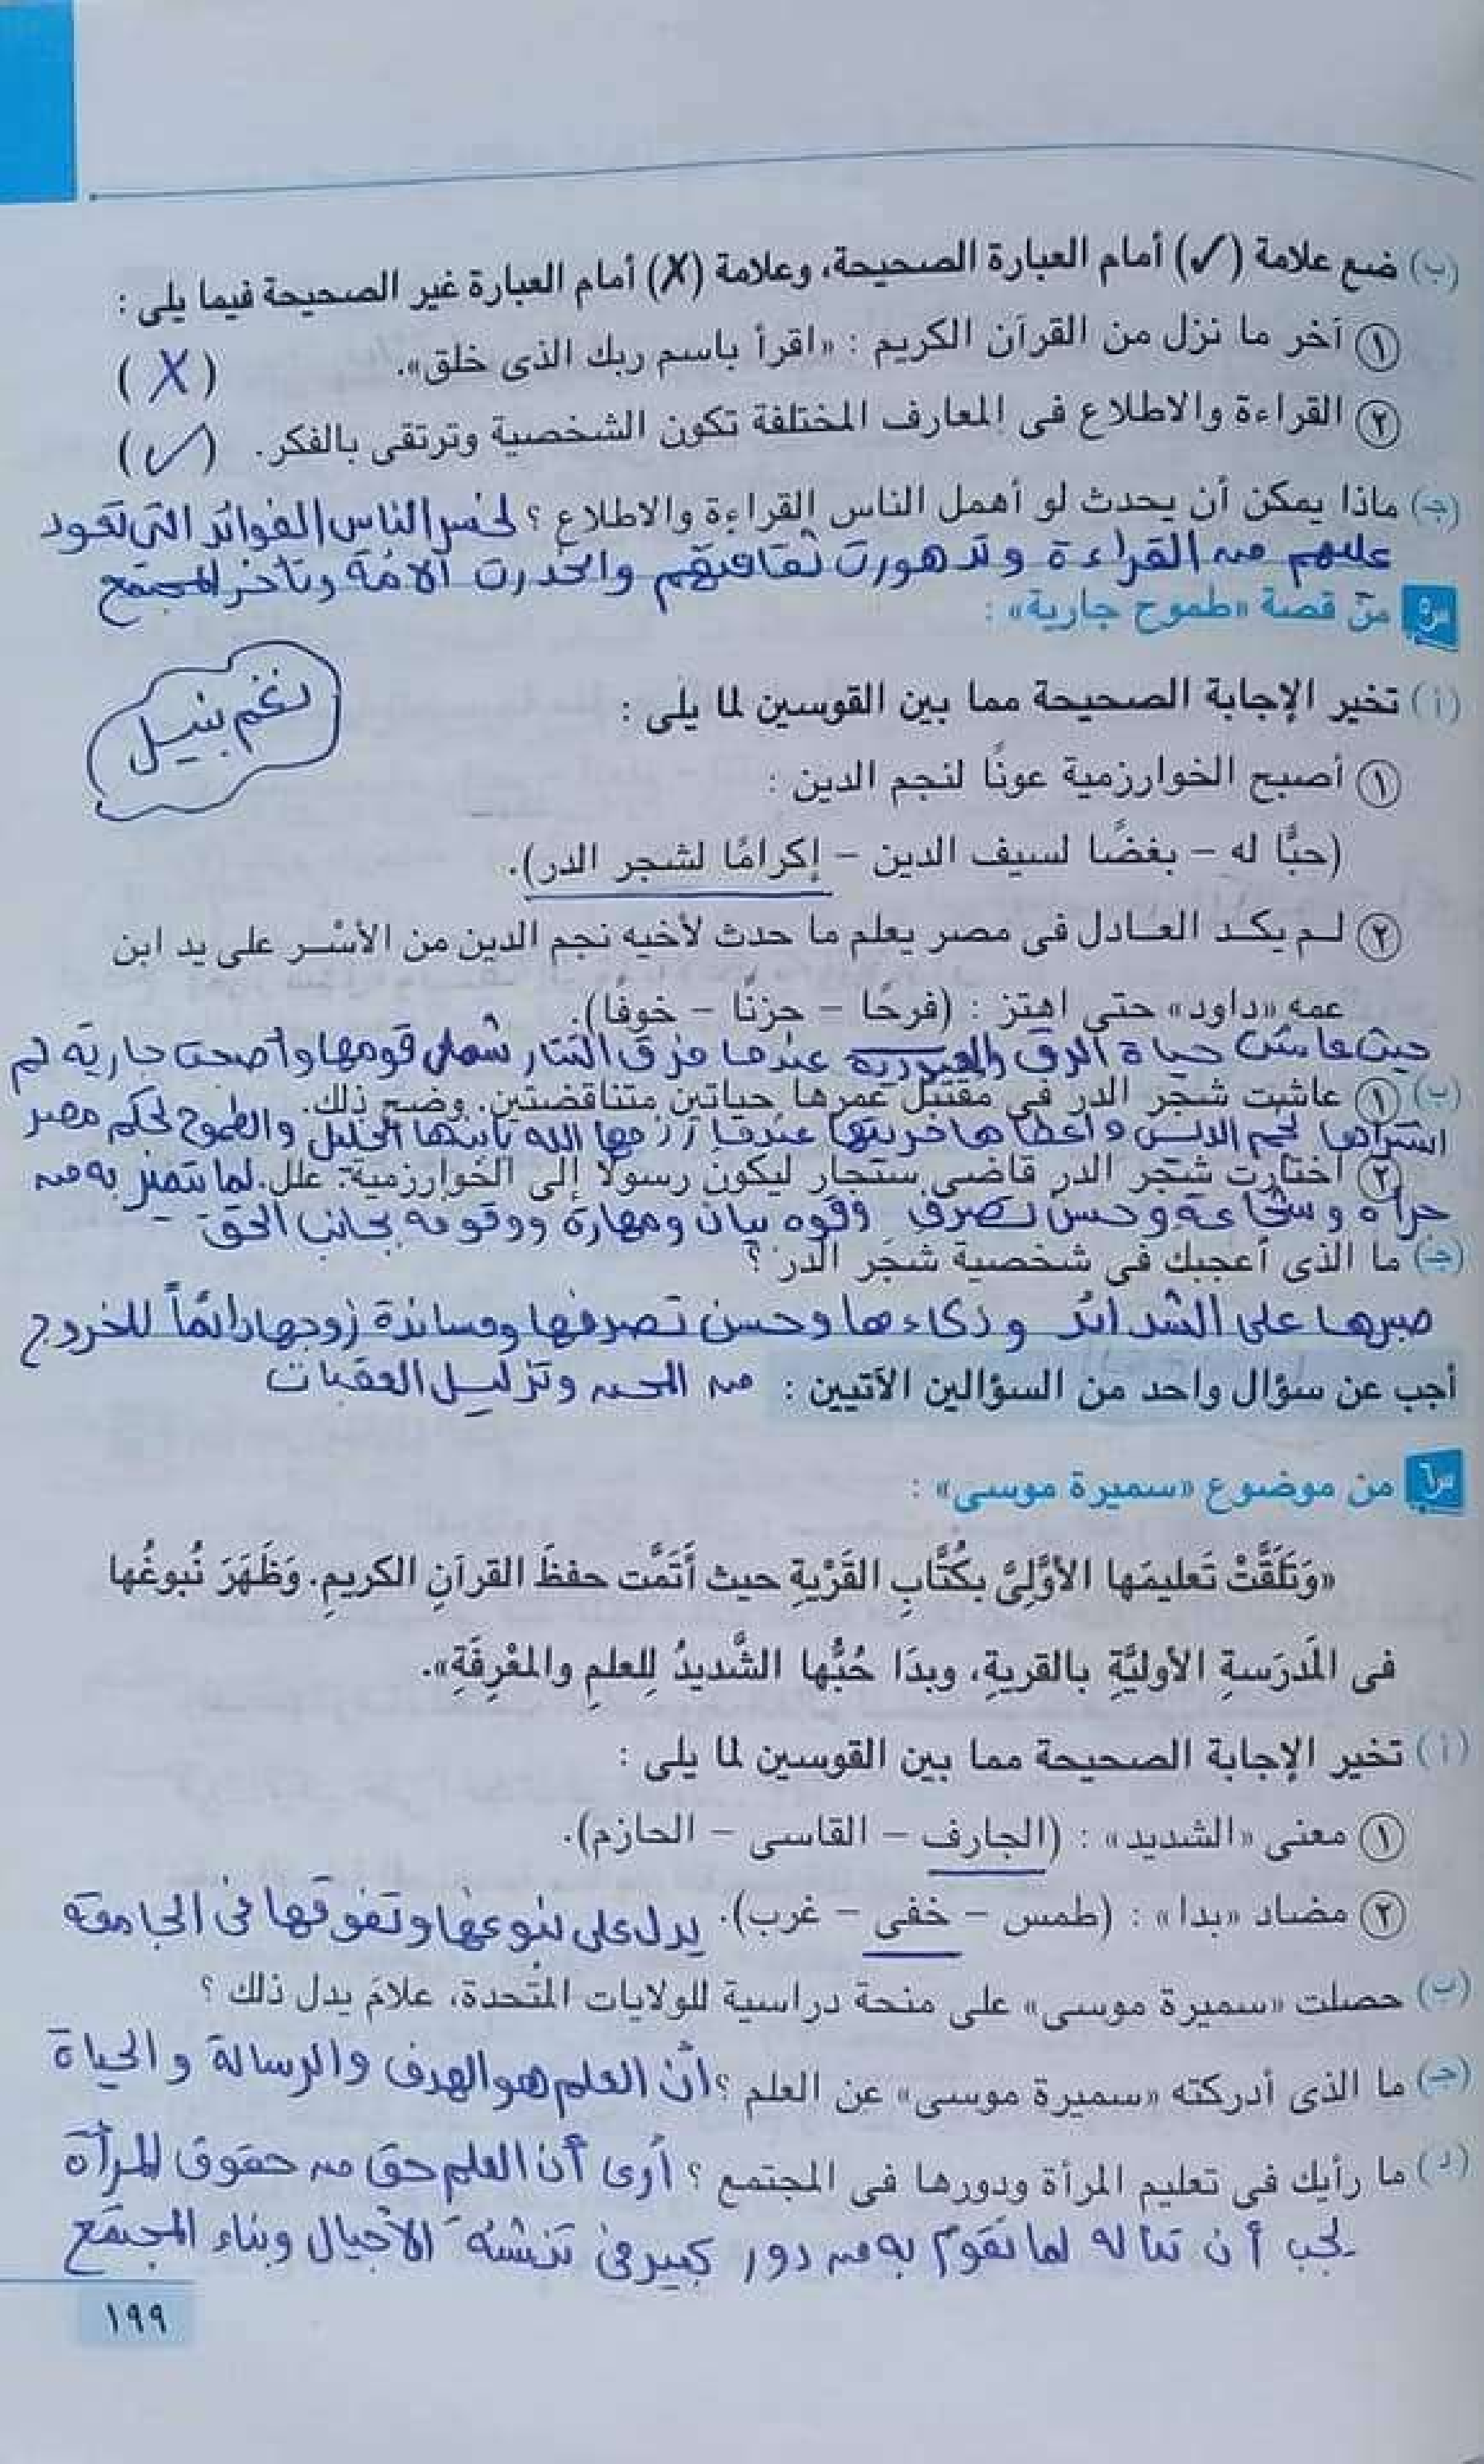 (ب) ضع علامة (✓) أمام العبارة الصحيحة، وعلامة (X) أمام العبارة غير الصحيحة فيما يلى :
١ آخر ما نزل من القرآن الكريم : «اقرأ باسم ربك الذى خلق». (X)
٢ القراءة والاطلاع فى المعارف المختلفة تكون الشخصية وترتقى بالفكر. (✓)
(جـ) ماذا يمكن أن يحدث لو أهمل الناس القراءة والاطلاع ؟ لخسر الناس الفوائد التى تعود
عليهم من القراءة وتدهورت ثقافتهم وانحدرت الأمة وتأخر المجتمع
س٥ من قصة «طموح جارية» :
(أ) تخير الإجابة الصحيحة مما بين القوسين لما يلى :
نغم نبيل
١ أصبح الخوارزمية عونًا لنجم الدين :
(حبًّا له – بغضًا لسيف الدين – إكرامًا لشجر الدر).
٢ لـم يكـد العـادل فى مصر يعلم ما حدث لأخيه نجم الدين من الأسْـر على يد ابن
عمه «داود» حتى اهتز : (فرحًا – حزنًا – خوفًا).
حيث عاشت حياة الرق والعبودية عندما مزق التتار شمل قومها وأصبحت جارية ثم
(ب) ١ عاشت شجر الدر فى مقتبل عمرها حياتين متناقضتين. وضح ذلك.
اشتراها نجم الدين وأعطاها حريتها عندما رزقها الله بابنها الخليل والطموح لحكم مصر
٢ اختارت شجر الدر قاضى سنجار ليكون رسولًا إلى الخوارزمية. علل. لما يتميز به من
جرأة وشجاعة وحسن تصرف وقوه بيان ومهارة ووقوفه بجانب الحق
(جـ) ما الذى أعجبك فى شخصية شجر الدر ؟
صبرها على الشدائد وذكاءها وحسن تصرفها ومساندة زوجها دائماً للخروج
أجب عن سؤال واحد من السؤالين الآتيين : من المحن وتذليل العقبات
س٦ من موضوع «سميرة موسى» :
«وَتَلَقَّتْ تَعليمَها الأوَّلِىَّ بكُتَّابِ القَرْيةِ حيث أَتَمَّت حفظَ القرآنِ الكريمِ. وَظَهَرَ نُبوغُها
فى المَدرَسةِ الأوليَّةِ بالقريةِ، وبدَا حُبُّها الشَّديدُ لِلعلمِ والمعْرِفَةِ».
(أ) تخير الإجابة الصحيحة مما بين القوسين لما يلى :
١ معنى «الشديد» : (الجارف – القاسى – الحازم).
٢ مضاد «بدا» : (طمس – خفى – غرب). يدل على نبوغها وتفوقها فى الجامعة
(ب) حصلت «سميرة موسى» على منحة دراسية للولايات المتُحدة، علامَ يدل ذلك ؟
(جـ) ما الذى أدركته «سميرة موسى» عن العلم ؟ أنّ العلم هو الهدف والرسالة والحياة
(د) ما رأيك فى تعليم المرأة ودورها فى المجتمع ؟ أرى أن العلم حق من حقوق المرأة
يجب أن تناله لما تقوم به من دور كبير فى تنشئة الأجيال وبناء المجتمع
١٩٩